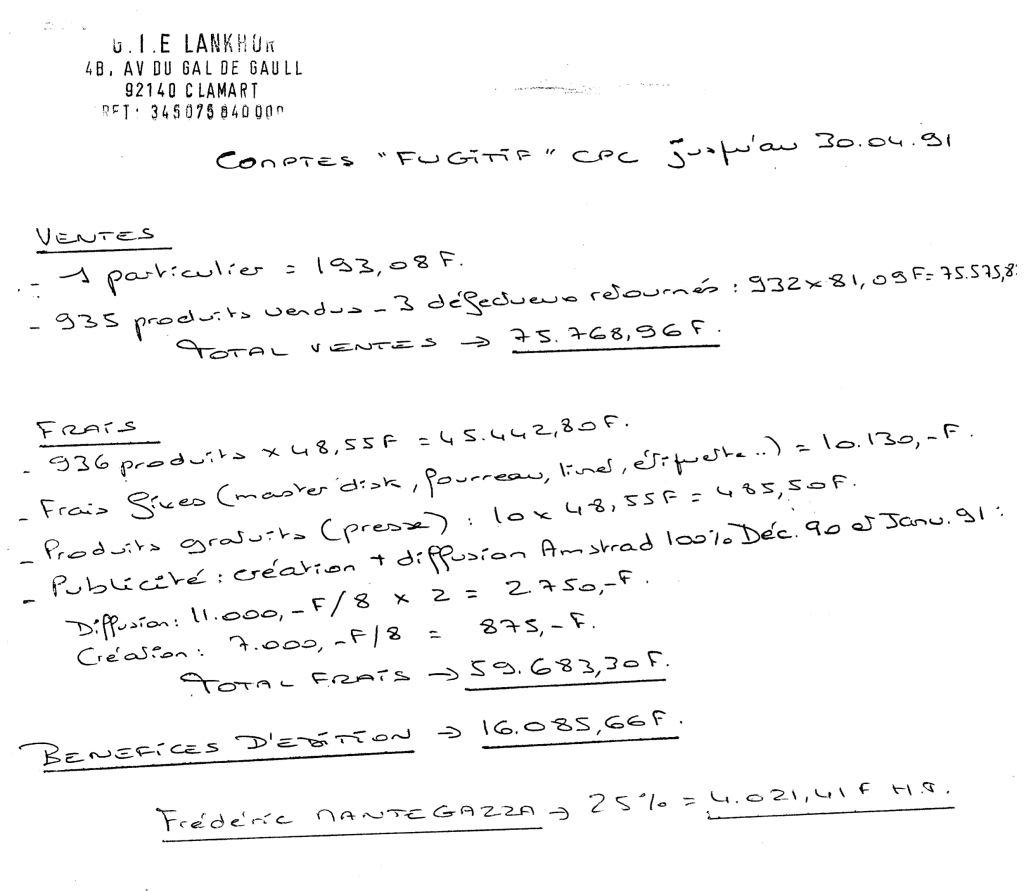 G.I.E LANKHOR
4B, AV DU GAL DE GAULL
92140 CLAMART
RET: 345075840 000
COMPTES "FUGITIF" CPC jusqu'au 30.04.91
VENTES
- 1 particulier = 193,08 F.
- 935 produits vendus - 3 défectueux retournés : 932 x 81,09 F = 75.575,8
TOTAL VENTES → 75.768,96 F.
FRAIS
- 936 produits x 48,55 F = 45.442,80 F.
- Frais fixes (master disk, fourreau, livret, étiquette..) = 10.130,- F.
- Produits gratuits (presse) : 10 x 48,55 F = 485,50 F.
- Publicité : création + diffusion Amstrad 100% Déc. 90 et Janv. 91 :
Diffusion : 11.000,- F/8 x 2 = 2.750,- F.
Création : 7.000,- F/8 = 875,- F.
TOTAL FRAIS → 59.683,30 F.
BENEFICES D'EDITION → 16.085,66 F.
Frédéric MANTEGAZZA → 25% = 4.021,41 F H.T.